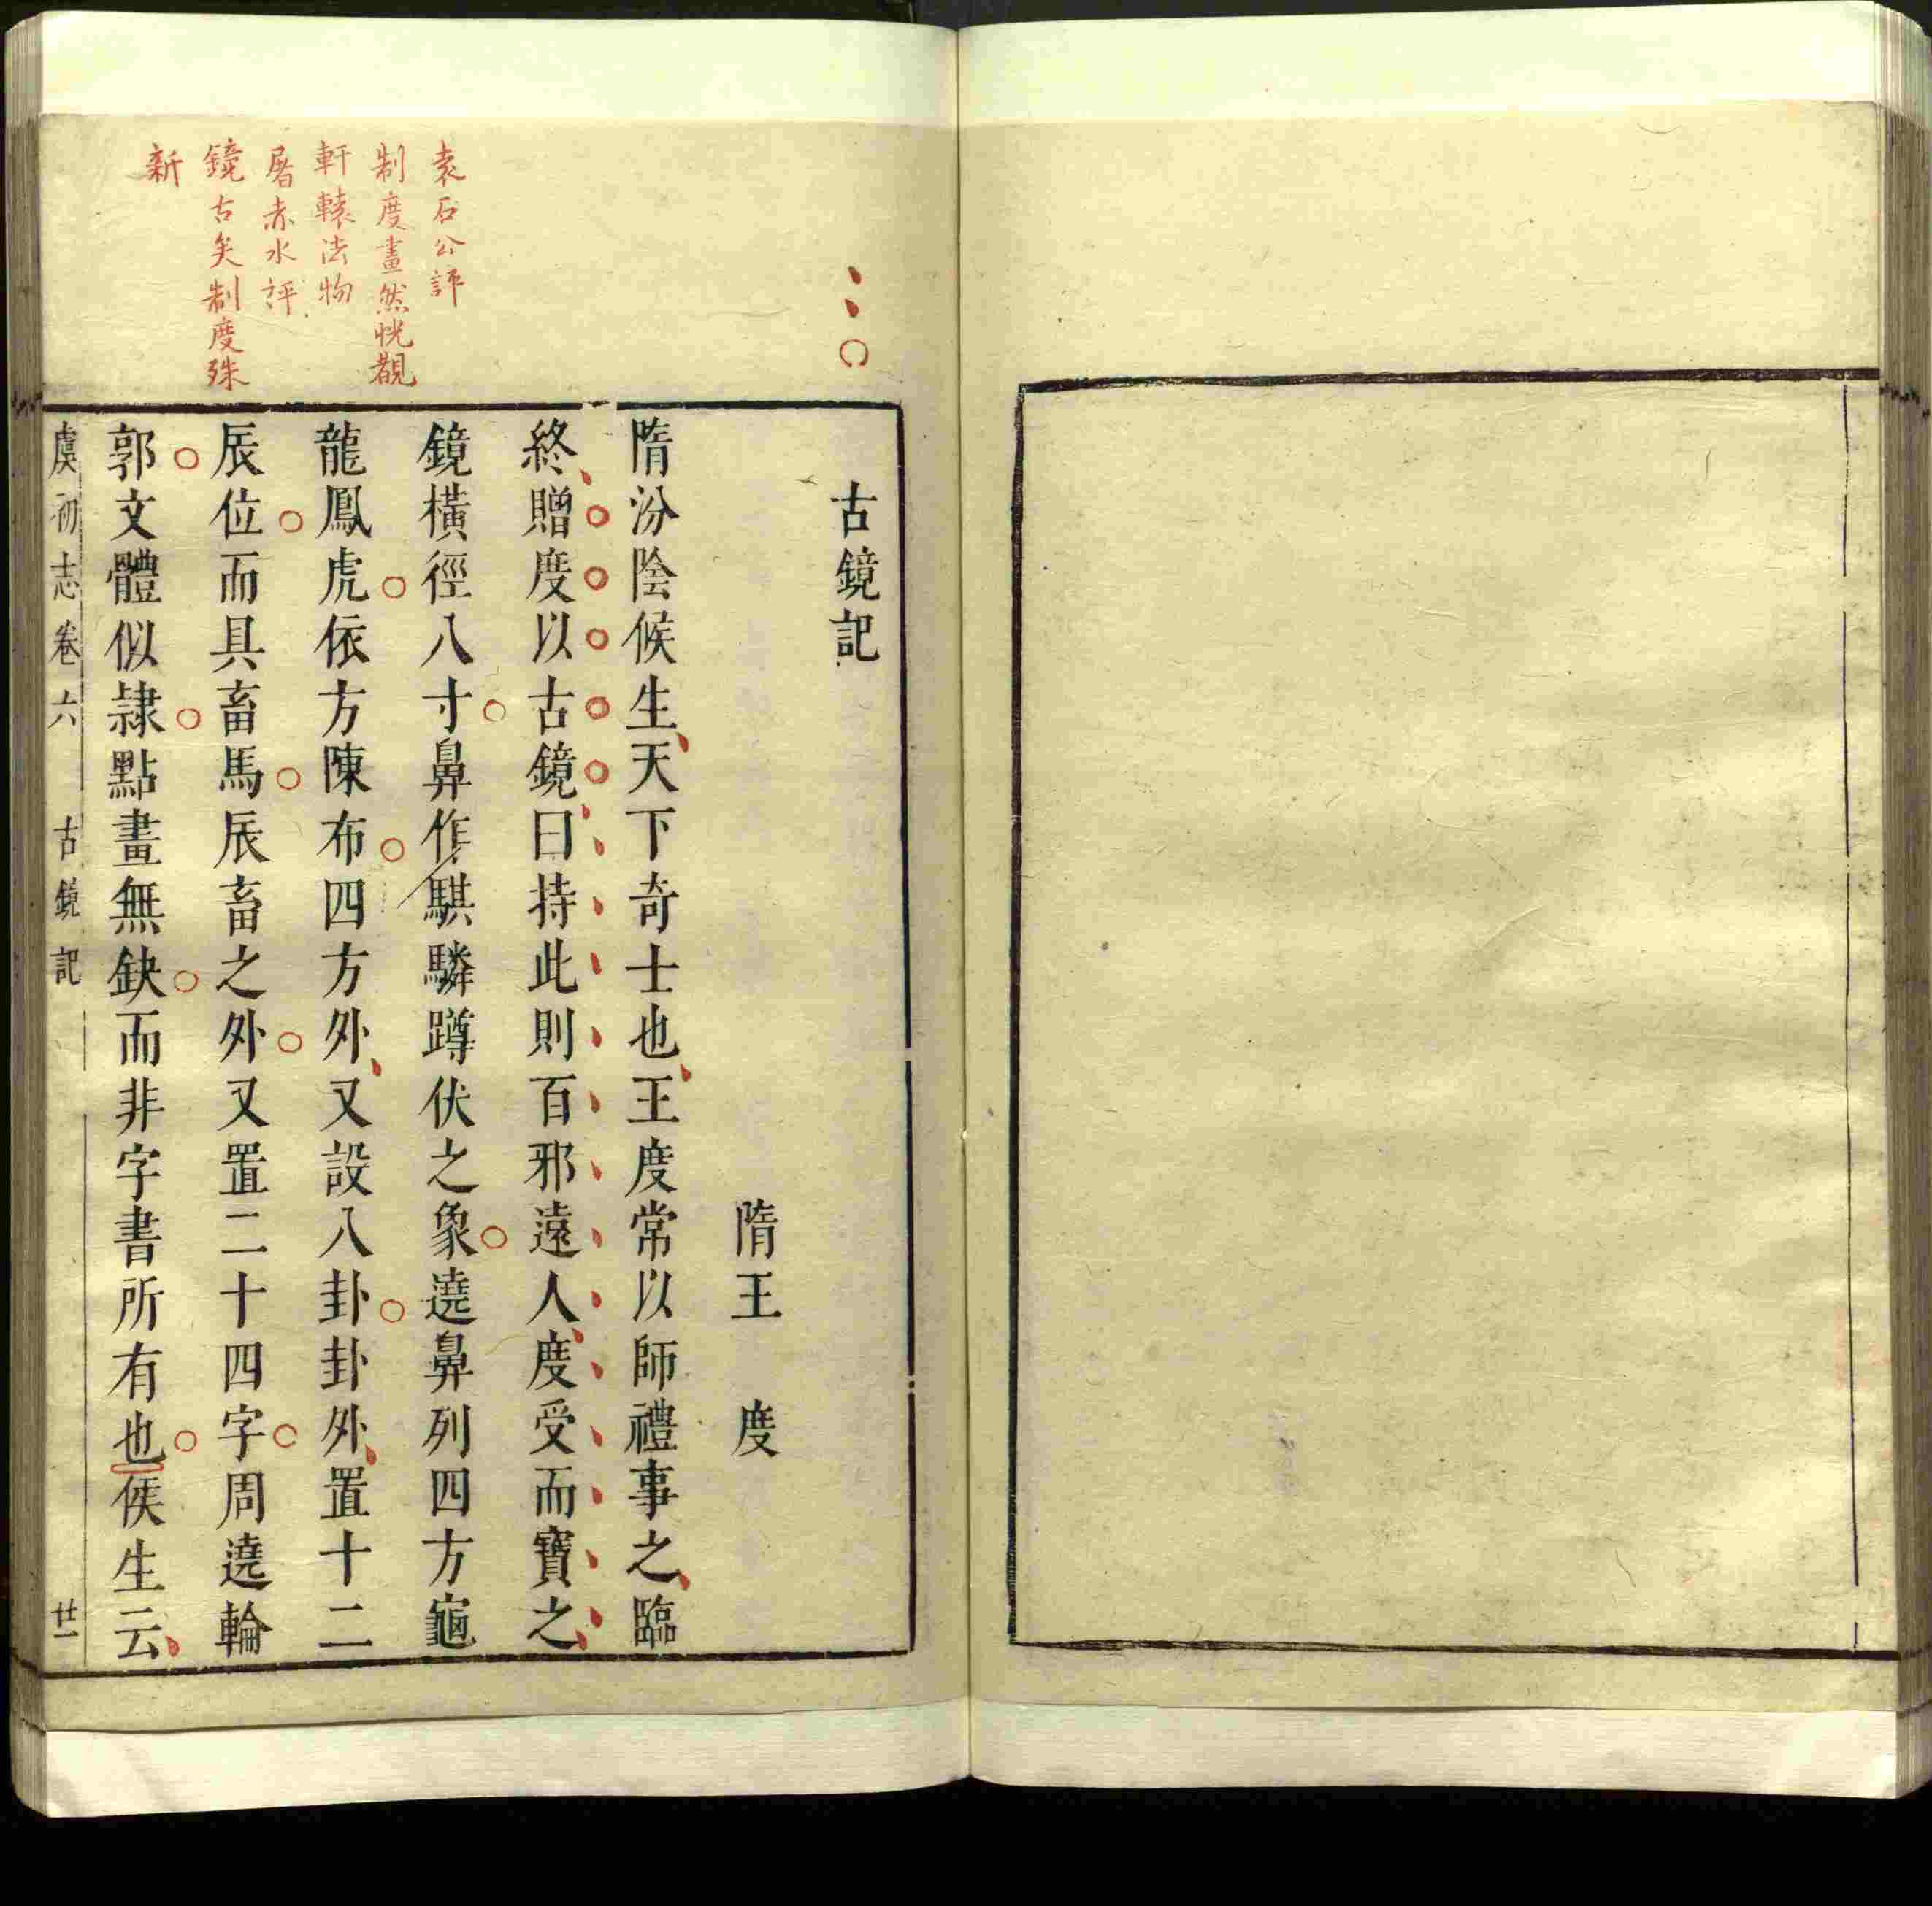 古鏡記
隋王度
隋汾陰候生天下奇士也王度常以師禮事之臨
終贈度以古鏡曰持此則百邪遠人度受而寶之
鏡橫徑八寸鼻作騏驎蹲伏之象遶鼻列四方龜
龍鳳虎依方陳布四方外又設八卦卦外置十二
辰位而具畜馬辰畜之外又置二十四字周遶輪
郭文體似隷點畫無缺而非字書所有也侯生云
袁石公評
制度畫然恍覩
軒轅法物
屠赤水評
鏡古矣制度殊
新
虞初志卷六 古鏡記 廿一